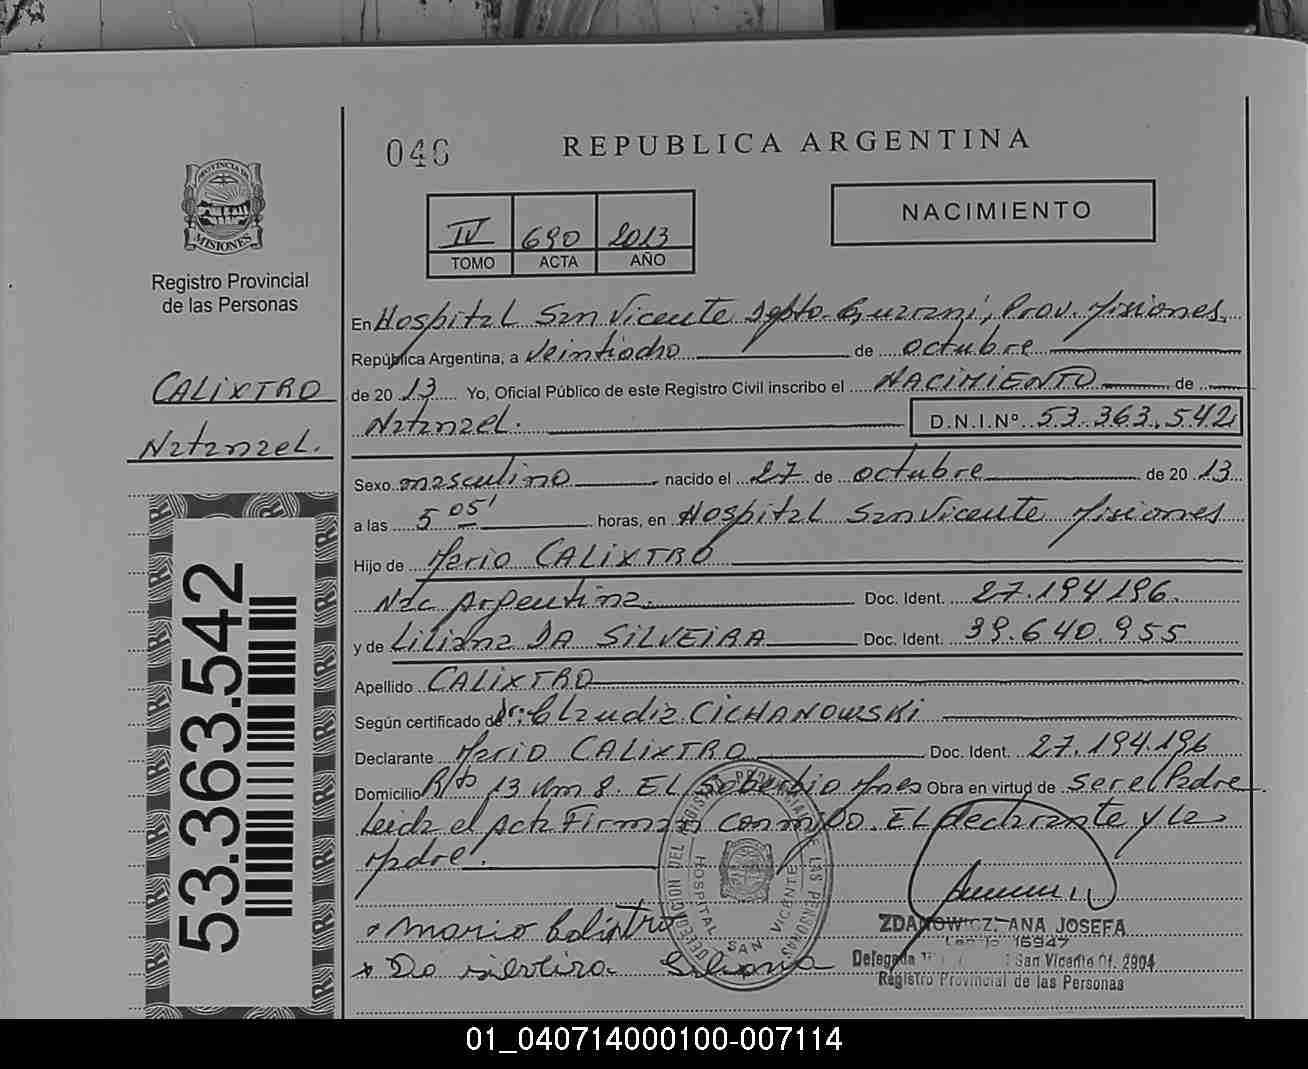 046
REPUBLICA ARGENTINA
PROVINCIA DE
MISIONES
Registro Provincial
de las Personas
IV 690 2013
TOMO ACTA AÑO
NACIMIENTO
En Hospital San Vicente Depto Guarani, Prov. Misiones.
República Argentina, a veintiocho de octubre
de 2013 Yo, Oficial Público de este Registro Civil inscribo el NACIMIENTO de
Natanael.
D.N.I.Nº 53.363.542
CALIXTRO
Natanael.
Sexo masculino nacido el 27 de octubre de 2013
a las 5 05' horas, en Hospital San Vicente Misiones
Hijo de Mario CALIXTRO
Nac Argentina. Doc. Ident. 27.194.196.
y de Liliana DA SILVEIRA Doc. Ident. 39.640.955
Apellido CALIXTRO
Según certificado de Dr: Claudia CICHANOWSKI
Declarante Mario CALIXTRO Doc. Ident. 27.194.196
Domicilio 13 Km 8. EL Soberbio Mnes Obra en virtud de ser el Padre
Leida el Acta Firman conmigo. El declarante y La
Madre.
53.363.542
DELEGACION DEL REGISTRO PROVINCIAL DE LAS PERSONAS
HOSPITAL SAN VICENTE
Mario Calixtro
Da silveira Liliana
ZDANOWICZ ANA JOSEFA
Delegada San Vicente Of. 2904
Registro Provincial de las Personas
01_040714000100-007114